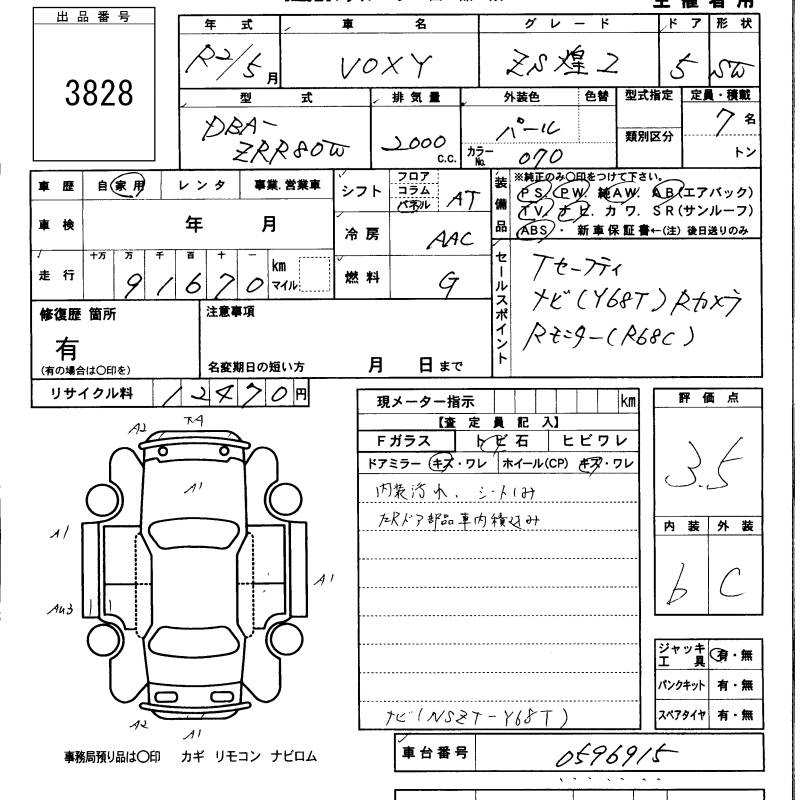 出品番号
3828
年式 車名 グレード ドア 形状
R2/5月 VOXY ZS煌2 5 SW
型式 排気量 外装色 色替 型式指定 定員・積載
DBA-
ZRR80W 2000 c.c. パール 類別区分 7名
カラーNo. 070 トン
車歴 自家用 レンタ 事業.営業車
車検 年 月
走行 十万 万 千 百 十 一 km マイル
91670
シフト フロア コラム パネル AT
冷房 AAC
燃料 G
装備品 ※純正のみ〇印をつけて下さい。
PS. PW. 純AW. AB(エアバック)
TV. ナビ. カワ. SR(サンルーフ)
ABS ・ 新車保証書←(注) 後日送りのみ
セールスポイント
Tセーフティ
ナビ(Y68T) Rカメラ
Rモニター(R68C)
修復歴 箇所
有
(有の場合は〇印を)
注意事項
名変期日の短い方 月 日まで
リサイクル料 12470円
現メーター指示 km
【査定員記入】
Fガラス トビ石 ヒビワレ
ドアミラー キズ・ワレ ホイール(CP) キズ・ワレ
内装汚れ、シートしみ
ドア部品車内積込み
ナビ(NSZT-Y68T)
評価点
3.5
内装 外装
b C
ジャッキ工具 有・無
パンクキット 有・無
スペアタイヤ 有・無
A2
A1
A1
A1
AU3
A2
A1
事務局預り品は〇印 カギ リモコン ナビロム
車台番号 0596915